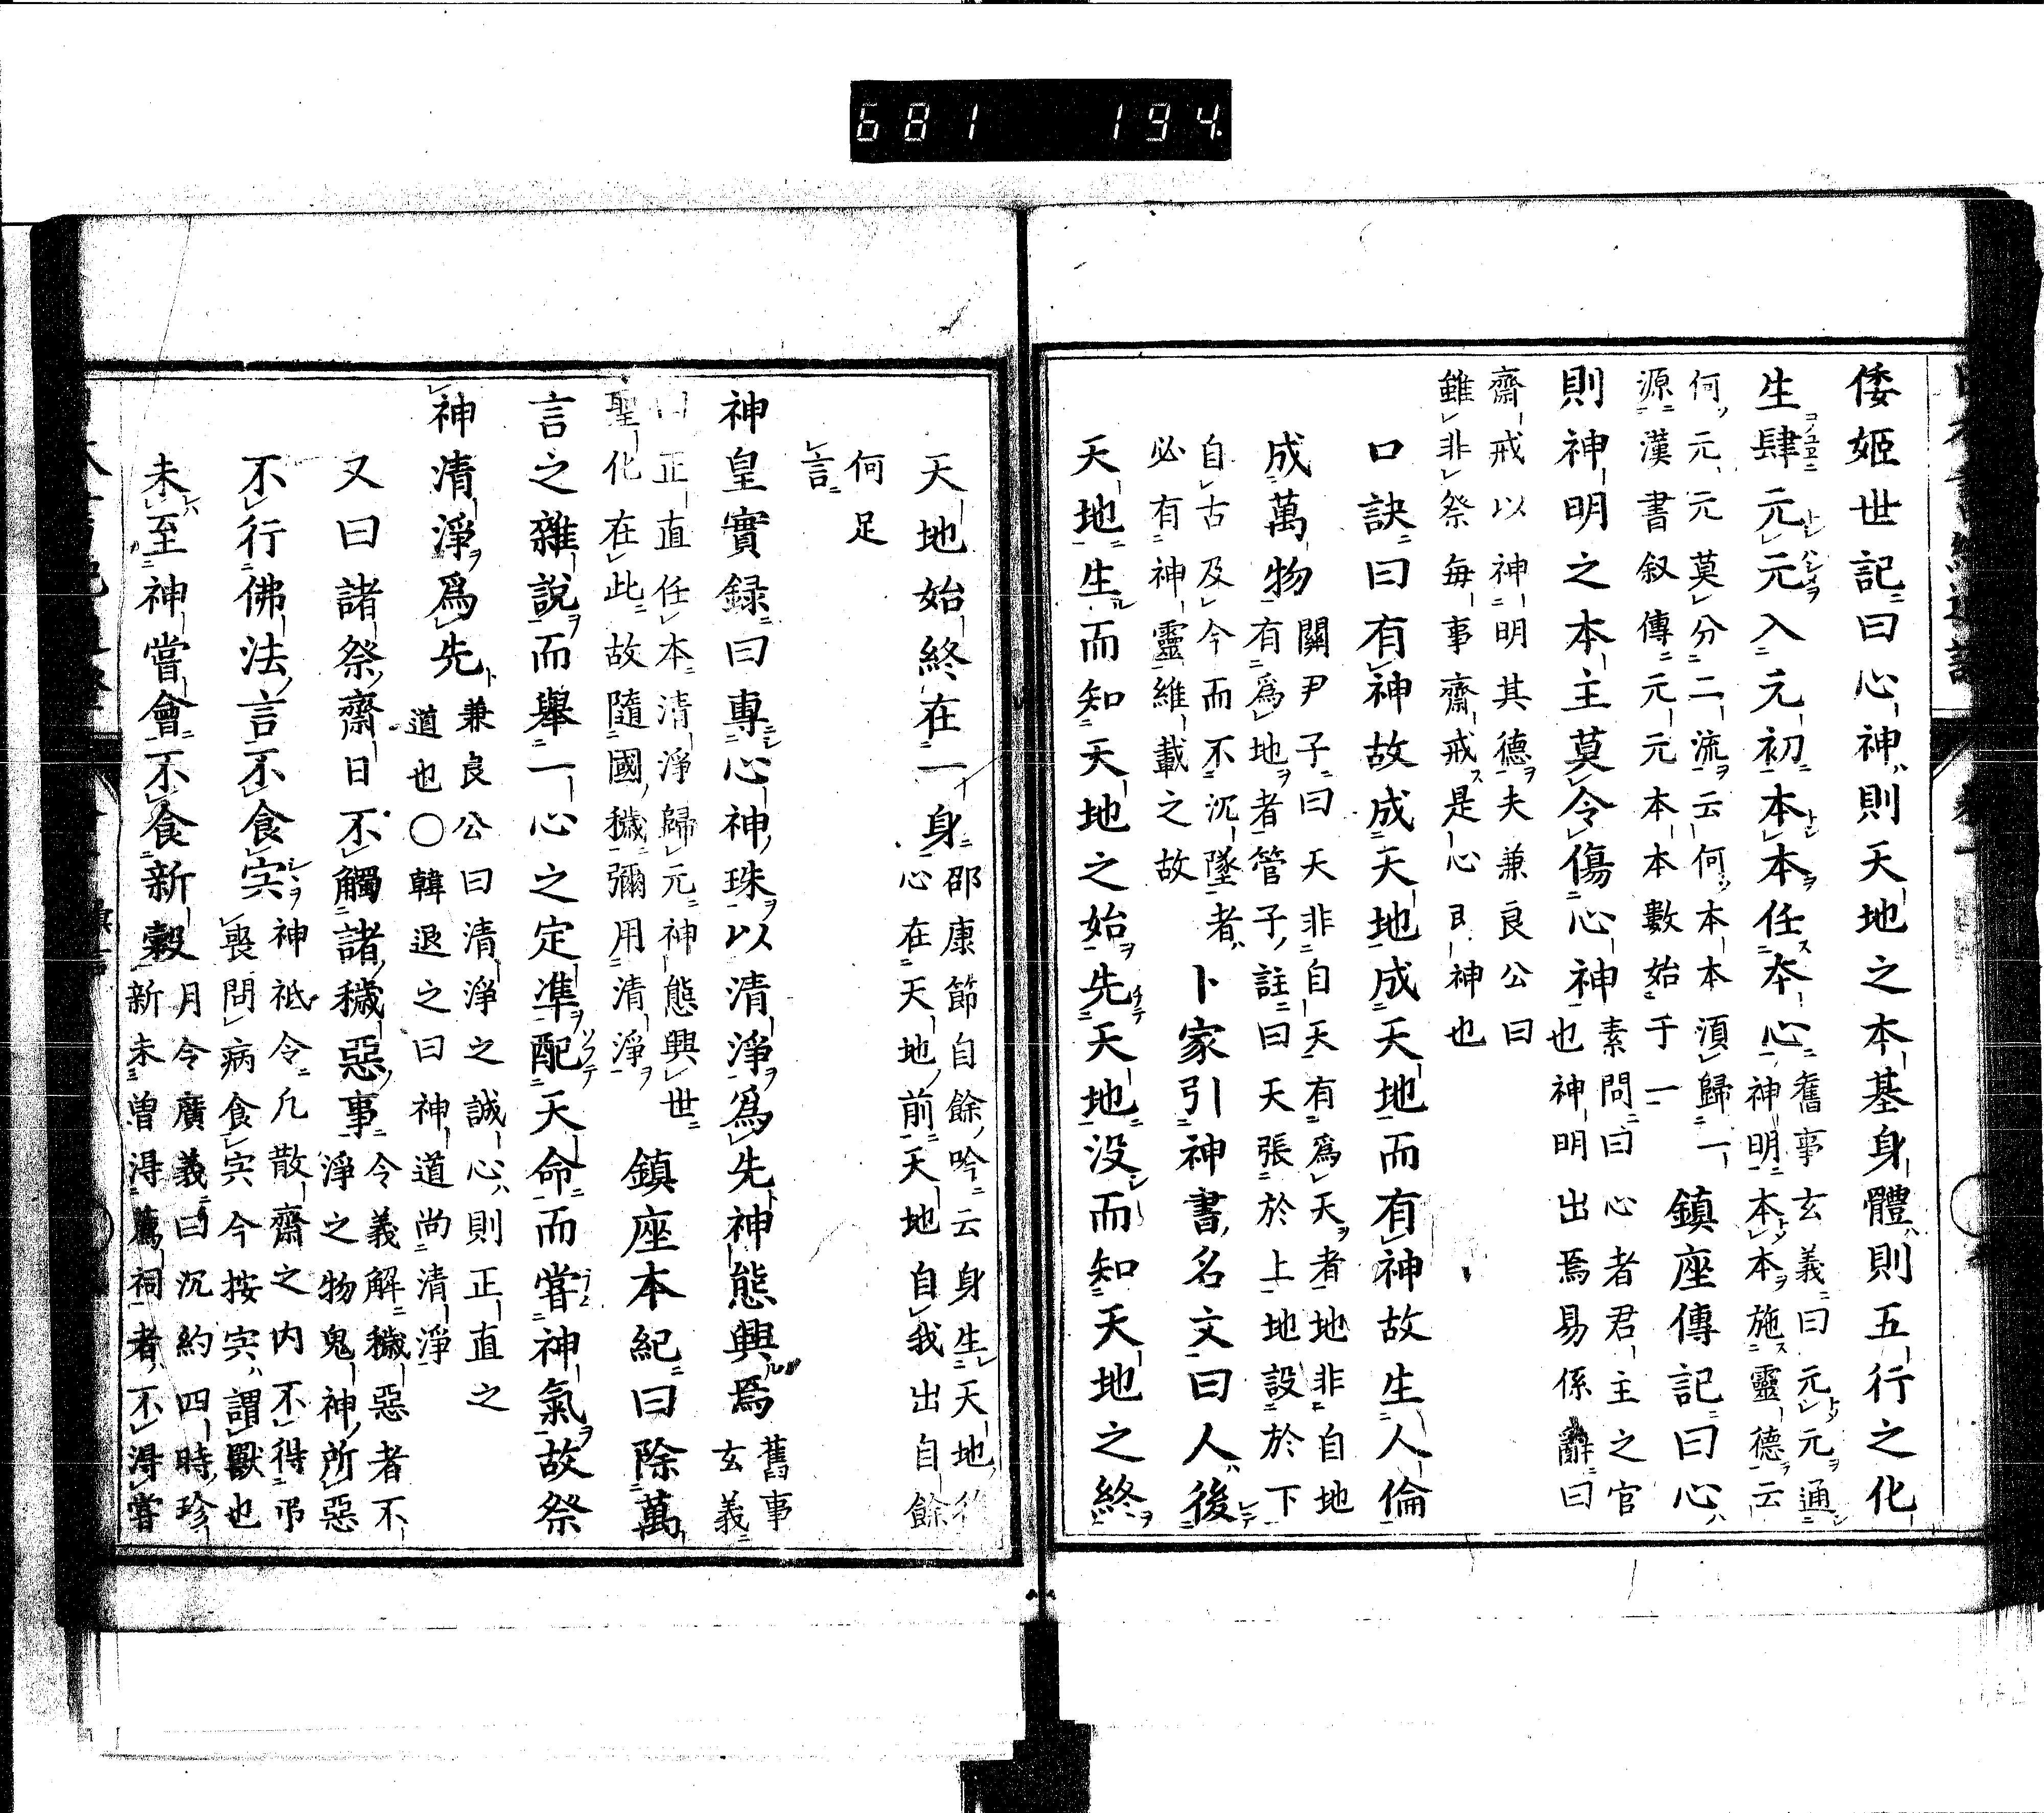 681 194
倭姬世記曰心神則天地之本基身體則五行之化
生肆元元入元初本本任本心舊事玄義曰元元通
神明本本施靈德云
何元元莫分二流云何本本須歸一
源漢書叙傳元元本本數始于一
鎮座傳記曰心
則神明之本主莫令傷心神素問曰心者君主之官
也神明出焉易係辭曰
齋戒以神明其德夫兼良公曰
雖非祭每事齋戒是心即神也
口訣曰有神故成天地成天地而有神故生人倫
成萬物關尹子曰天非自天有爲天者地非自地
有爲地者管子註曰天張於上地設於下
自古及今而不沉墜者
必有神靈維載之故
卜家引神書名文曰人後
天地生而知天地之始先天地没而知天地之終
天地始終在一身邵康節自餘吟云身生天地後
心在天地前天地自我出自餘
何足
言
神皇實録曰專心神珠以清淨爲先神態興焉舊事
玄義
曰正直任本清淨歸元神態興世
聖化在此故隨國穢彌用清淨
鎮座本紀曰除萬
言之雜說而舉一心之定準配天命而嘗神氣故祭
神清淨爲先兼良公曰清淨之誠心則正直之
道也〇韓退之曰神道尚清淨
又曰諸祭齋日不觸諸穢惡事令義解穢惡者不
淨之物鬼神所惡
不行佛法言不食宍神祇令凡散齋之内不得弔
喪問病食宍今按宍謂獸也
未至神嘗會不食新穀月令廣義曰沉約四時珍
新未曾得薦祠者不得嘗